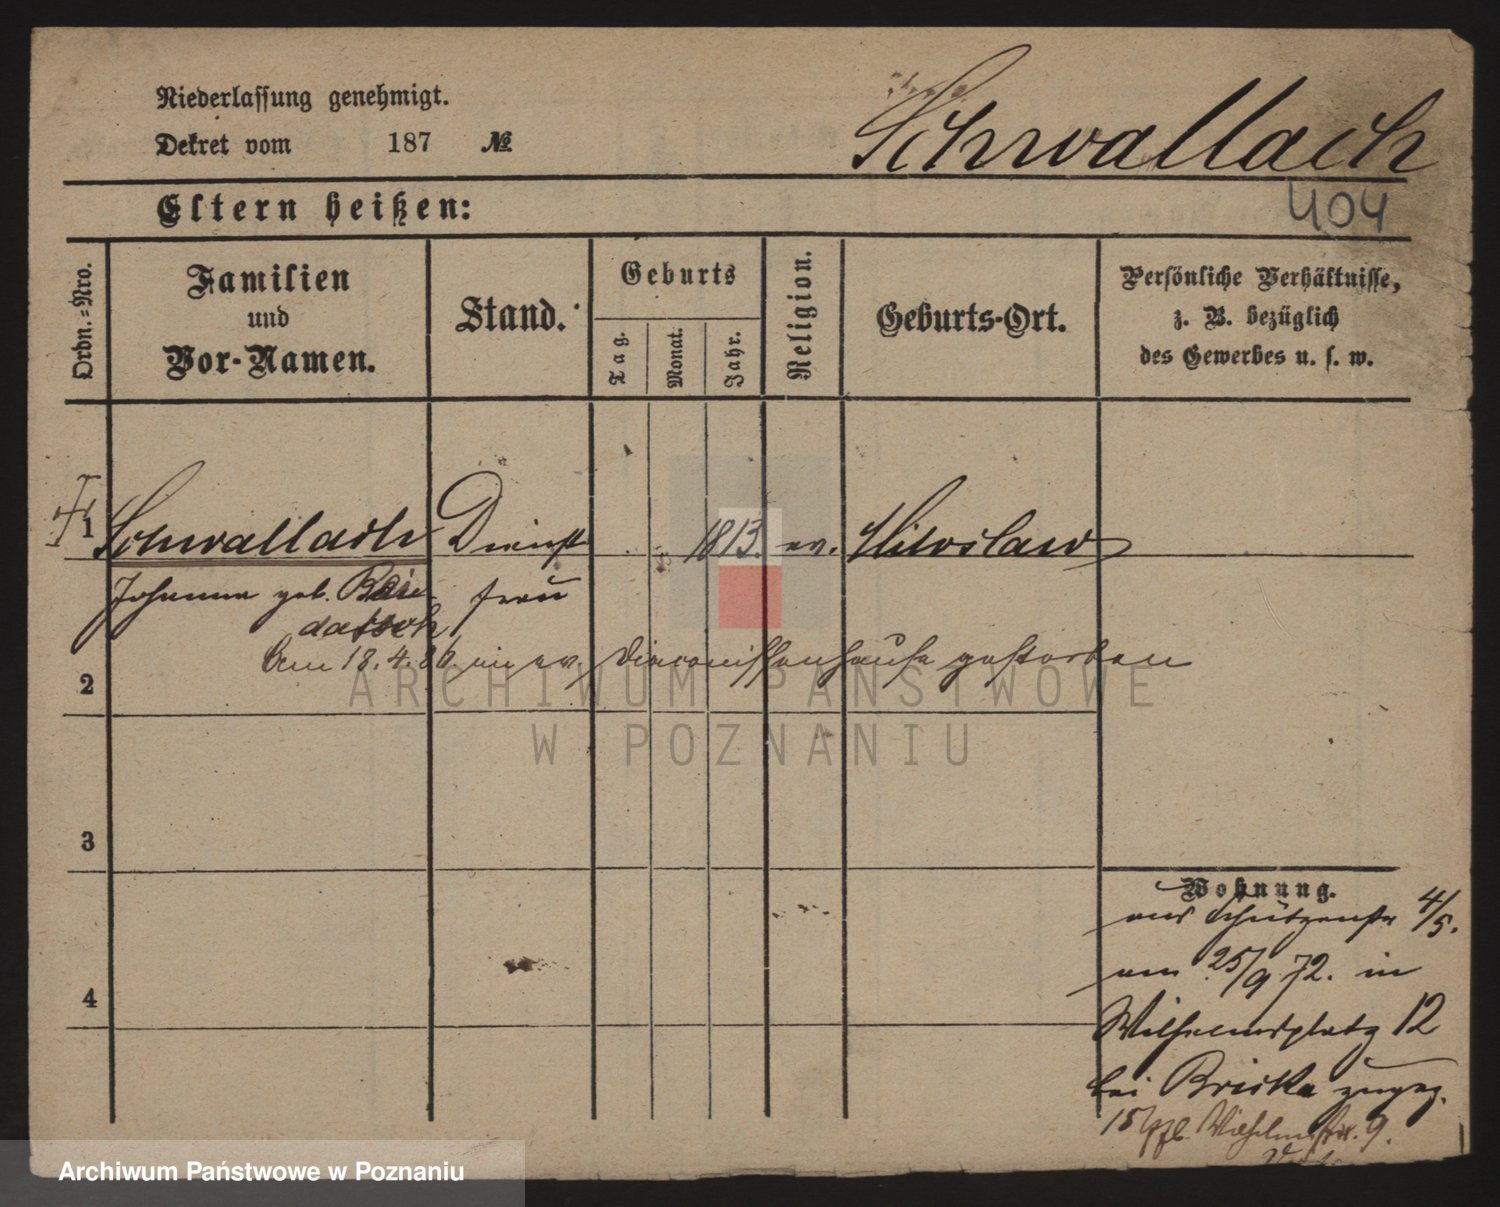 Niederlassung genehmigt.
Dekret vom 187 №
Schwallach
404
Eltern heißen:
Ordn.=Nro.
Familien und Vor-Namen.
Stand.
Geburts
Tag.
Monat.
Jahr.
Religion.
Geburts-Ort.
Persönliche Verhältnisse,
z. B. bezüglich
des Gewerbes u. s. w.
1 Schwallach Dienst 1813. ev. Miloslaw
Johanna geb. frau
Am 18.4.86. im ev. Diaconissenhause gestorben
2
ARCHIWUM PAŃSTWOWE
W POZNANIU
3
4
Wohnung.
aus Schützenstr 4/5.
am 25/9 72. in
Wilhelmsplatz 12
bei Briske zugez.
Wilhelmstr. 9.
Archiwum Państwowe w Poznaniu